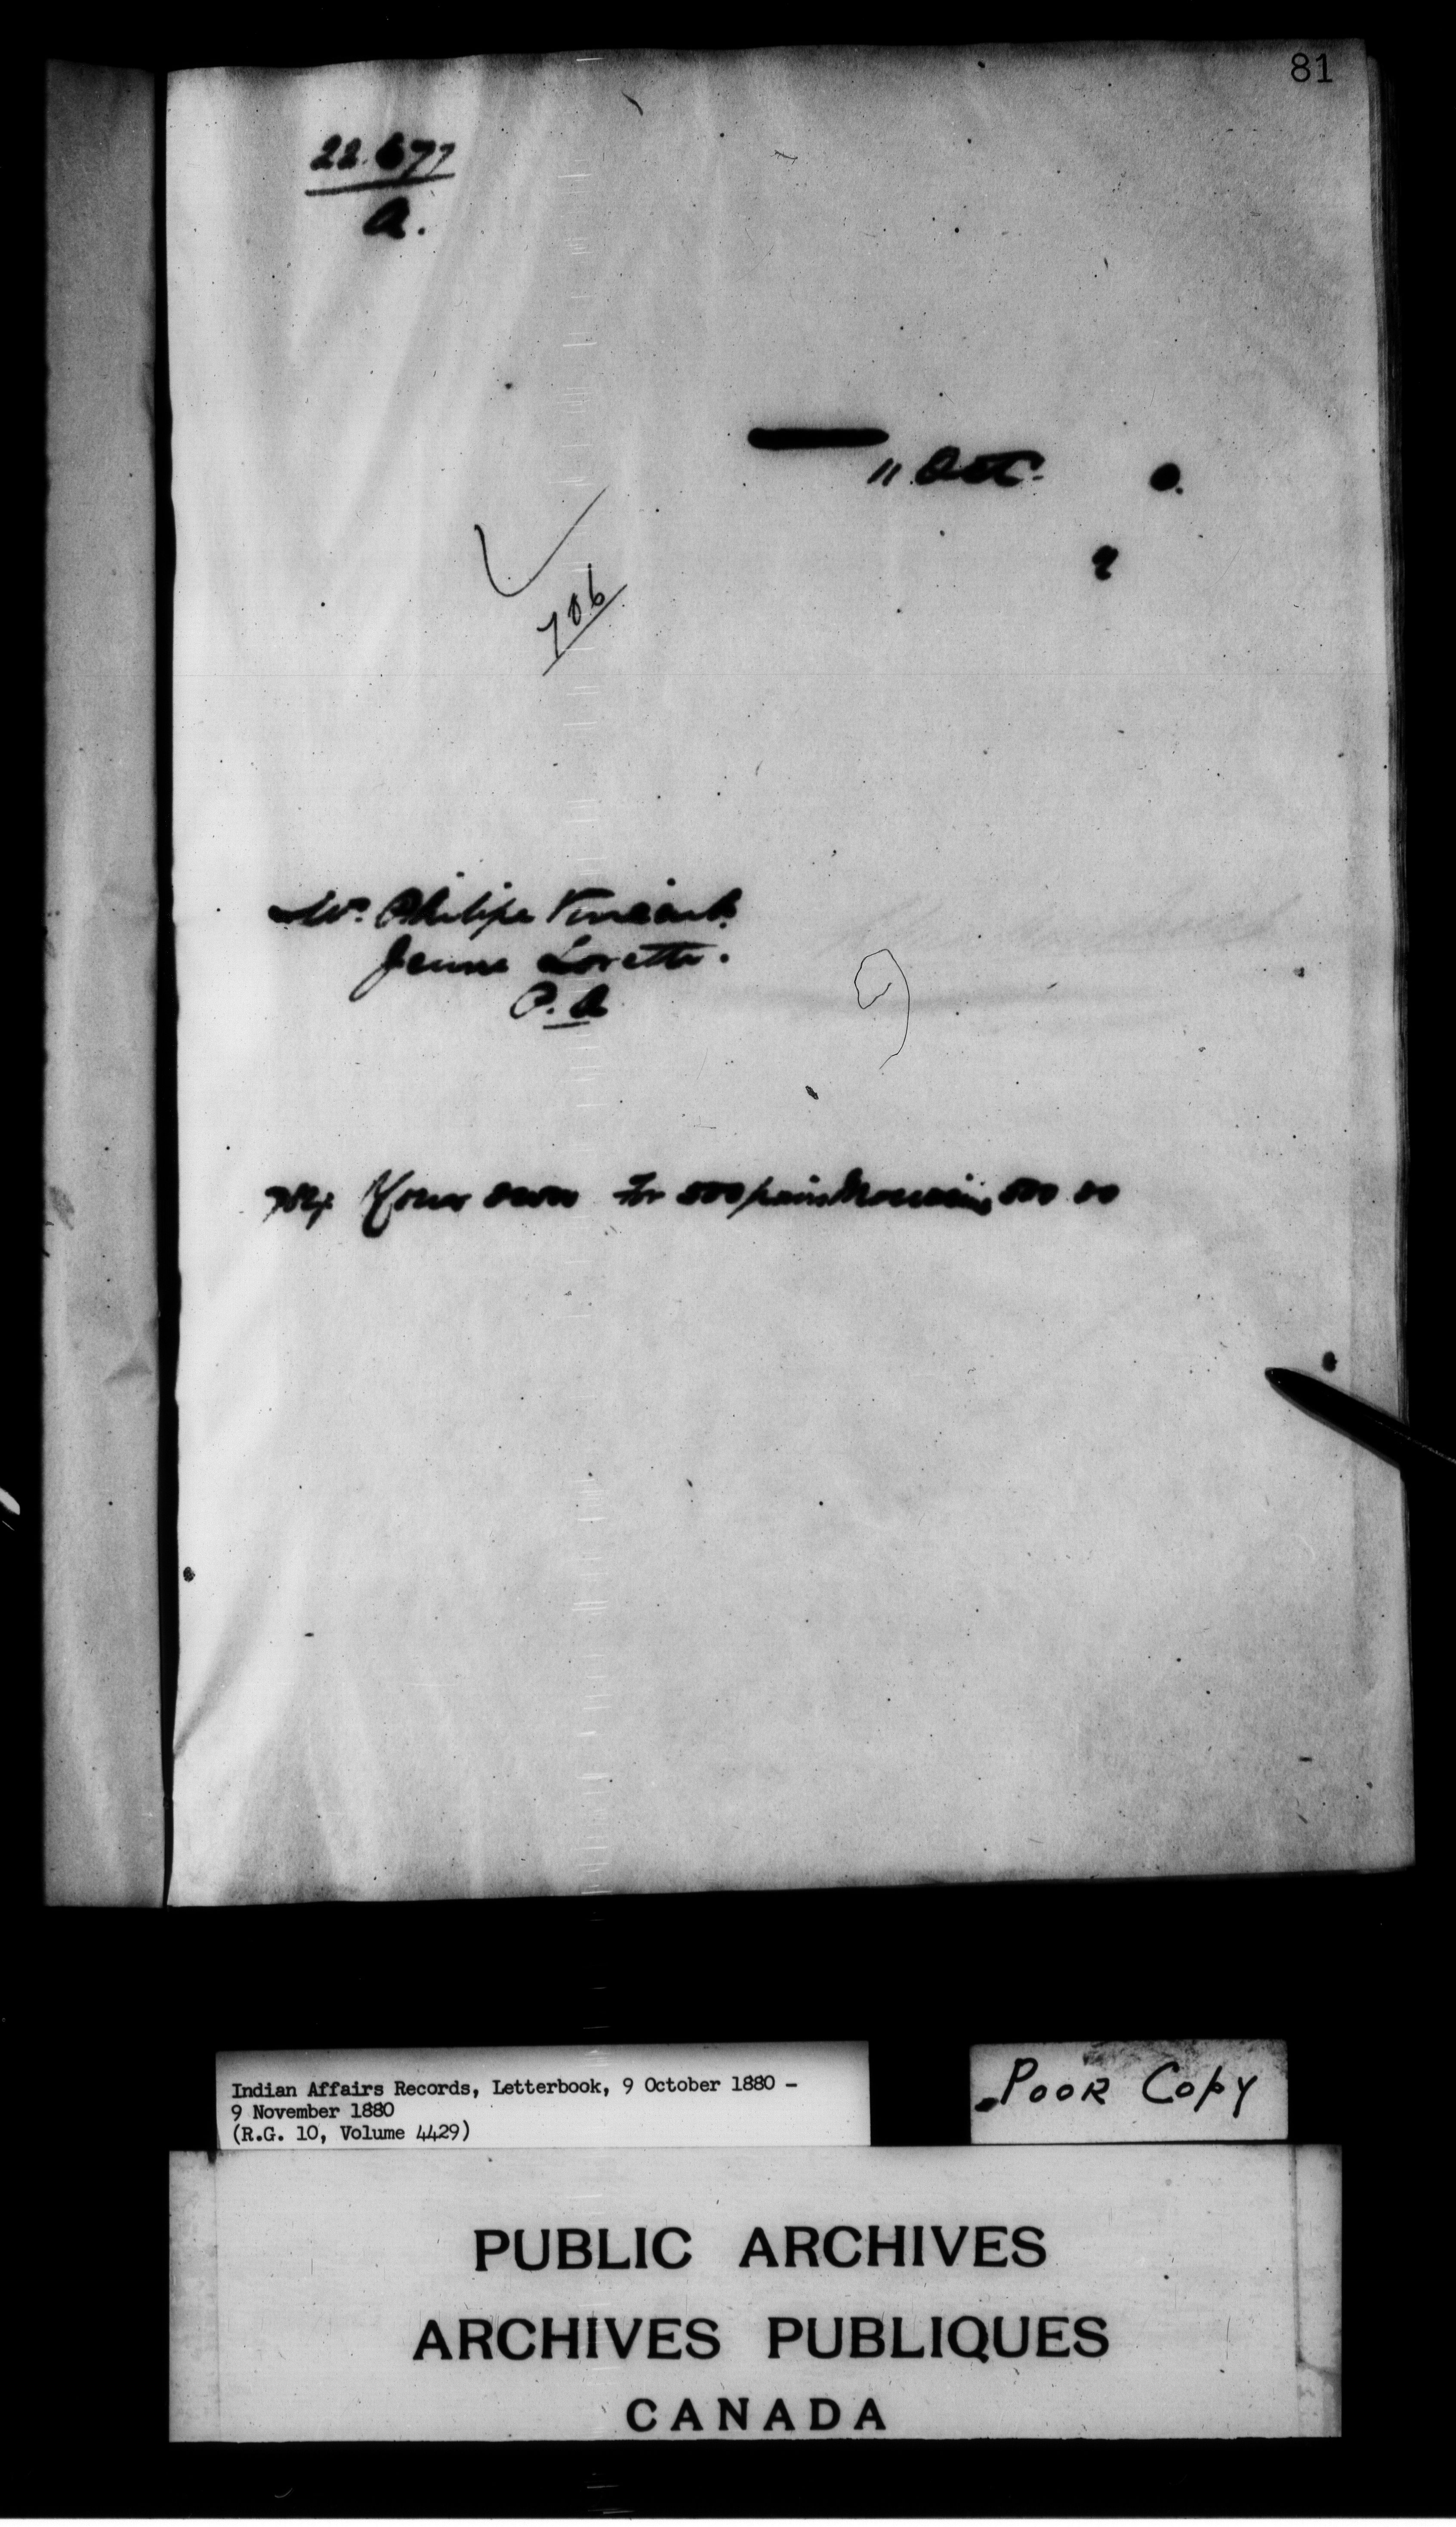 81
22.677
A.
11 Oct. 0.
9
706
Mr. Philipe Vincent.
Jeune Lorette.
P. Q
Your own for 500 pairs Moccasins 500 00
Indian Affairs Records, Letterbook, 9 October 1880 -
9 November 1880
(R.G. 10, Volume 4429)
Poor Copy
PUBLIC ARCHIVES
ARCHIVES PUBLIQUES
CANADA